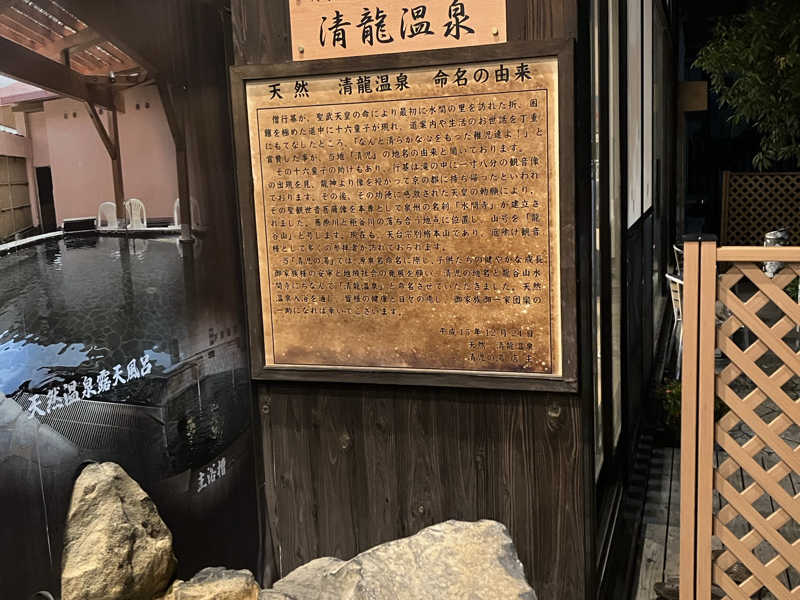 清龍温泉
天然　清龍温泉　命名の由来
僧行基が、聖武天皇の命により最初に水間の里を訪れた折、困
難を極めた道中に十六童子が現れ、道案内や生活のお世話を清ら
にもてなしたところ、「なんと清らかな心をもった稚児達よ！」と
賞賛した事が、当地「清児」の地名の由来と聞いております。
その十六童子の助けもあり、行基は滝の中に一寸八分の観音像
の出現を見、龍神より像を授かって京の都に持ち帰ったといわれ
ております。その後、その功徳に感歎された天皇の勅願により、
その聖観世音菩薩像を本尊として泉州の名刹「水間寺」が建立さ
れました。蕎原川と秬谷川の落ち合う地点に位置し、山号を「龍
谷山」と号します。現在も、天台宗別格本山であり、厄除け観音
様として多くの参拝者が訪れておられます。
当「清児の湯」では、源泉名命名に際し、子供たちの健やかな成長、
御家族様の安寧と地域社会の発展を願い、清児の地名と龍谷山水
間寺にちなんで「清龍温泉」と命名させていただきました。天然
温泉入浴を通し、皆様の健康と日々の癒し、御家族御一家団欒の
一助になれば幸いでございます。
平成15年12月24日
天然　清龍温泉
清児の湯　店主
天然温泉露天風呂
主浴槽